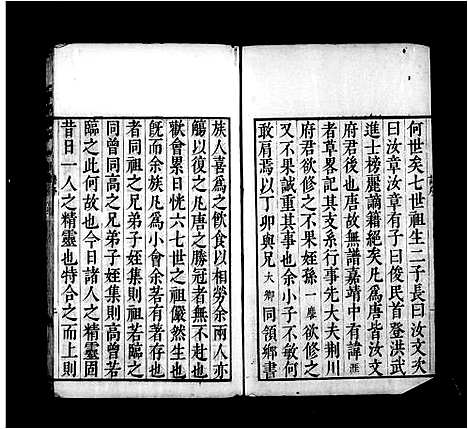 何世矣七世祖生二子長曰汝文次
曰汝章汝章有子曰俊民首登洪武
進士榜麗謫籍絕矣凡為唐皆汝文
府君後也唐故無譜嘉靖中有諱涯
者草畧記其支系行事先大夫荆川
府君欲修之不果姪孫一麐欲修之
又不果誠重其事也余小子不敏何
敢肩焉以丁卯與兄大卿同領鄉書
族人喜為之飲食以相勞余兩人亦
觴以復之凡唐之勝冠者無不赴也
歡會累日恍六七世之祖儼然生也
旣而余族凡為小會余若有著存也
者同祖之兄弟子姪集則祖若臨之
同曾同高之兄弟子姪集則高曾若
臨之此何故也今日諸人之精靈固
昔日一人之精靈也特合之而上則